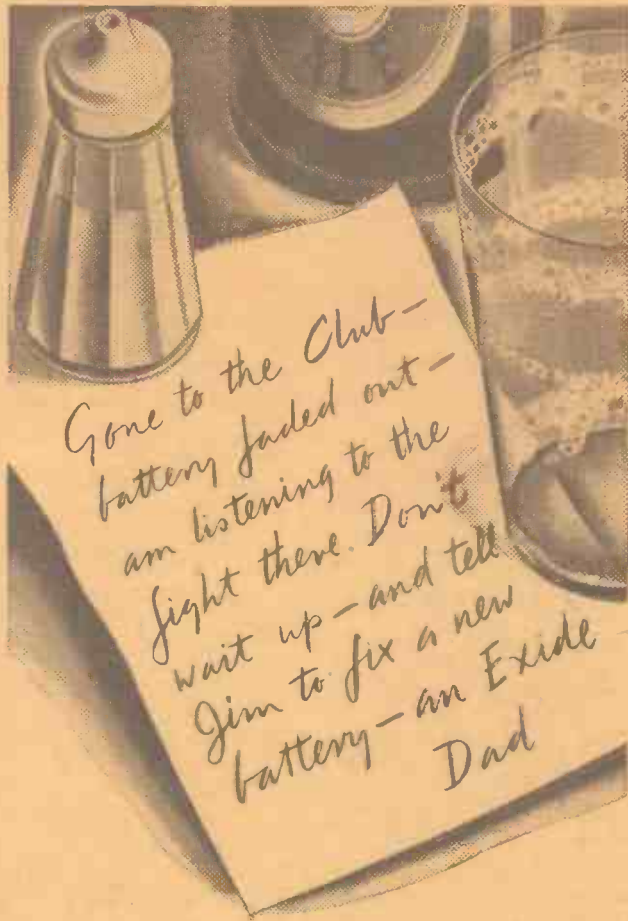 Gone to the Club –
battery faded out –
am listening to the
fight there. Don't
wait up – and tell
Jim to fix a new
battery – an Exide
Dad